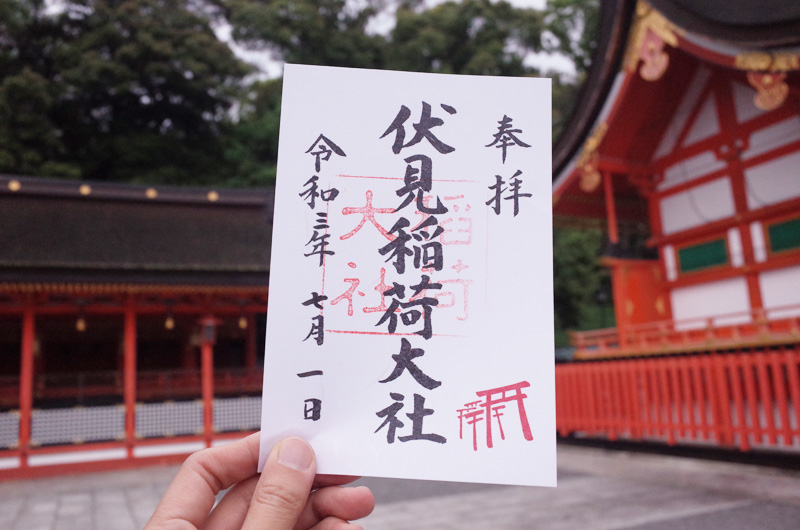 奉拝
伏見稲荷大社
稲荷
大社
令和三年 七月 一日